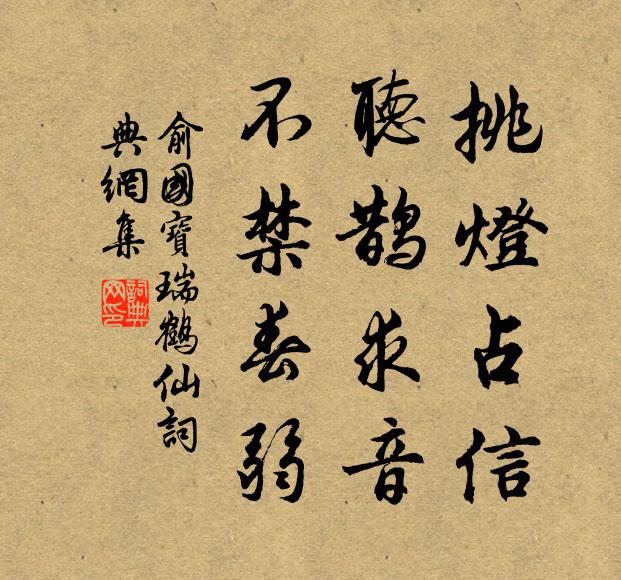 挑燈占信
聽鹊求音
不禁春弱
俞國寶瑞鶴仙詞
典網集
詞典
网印